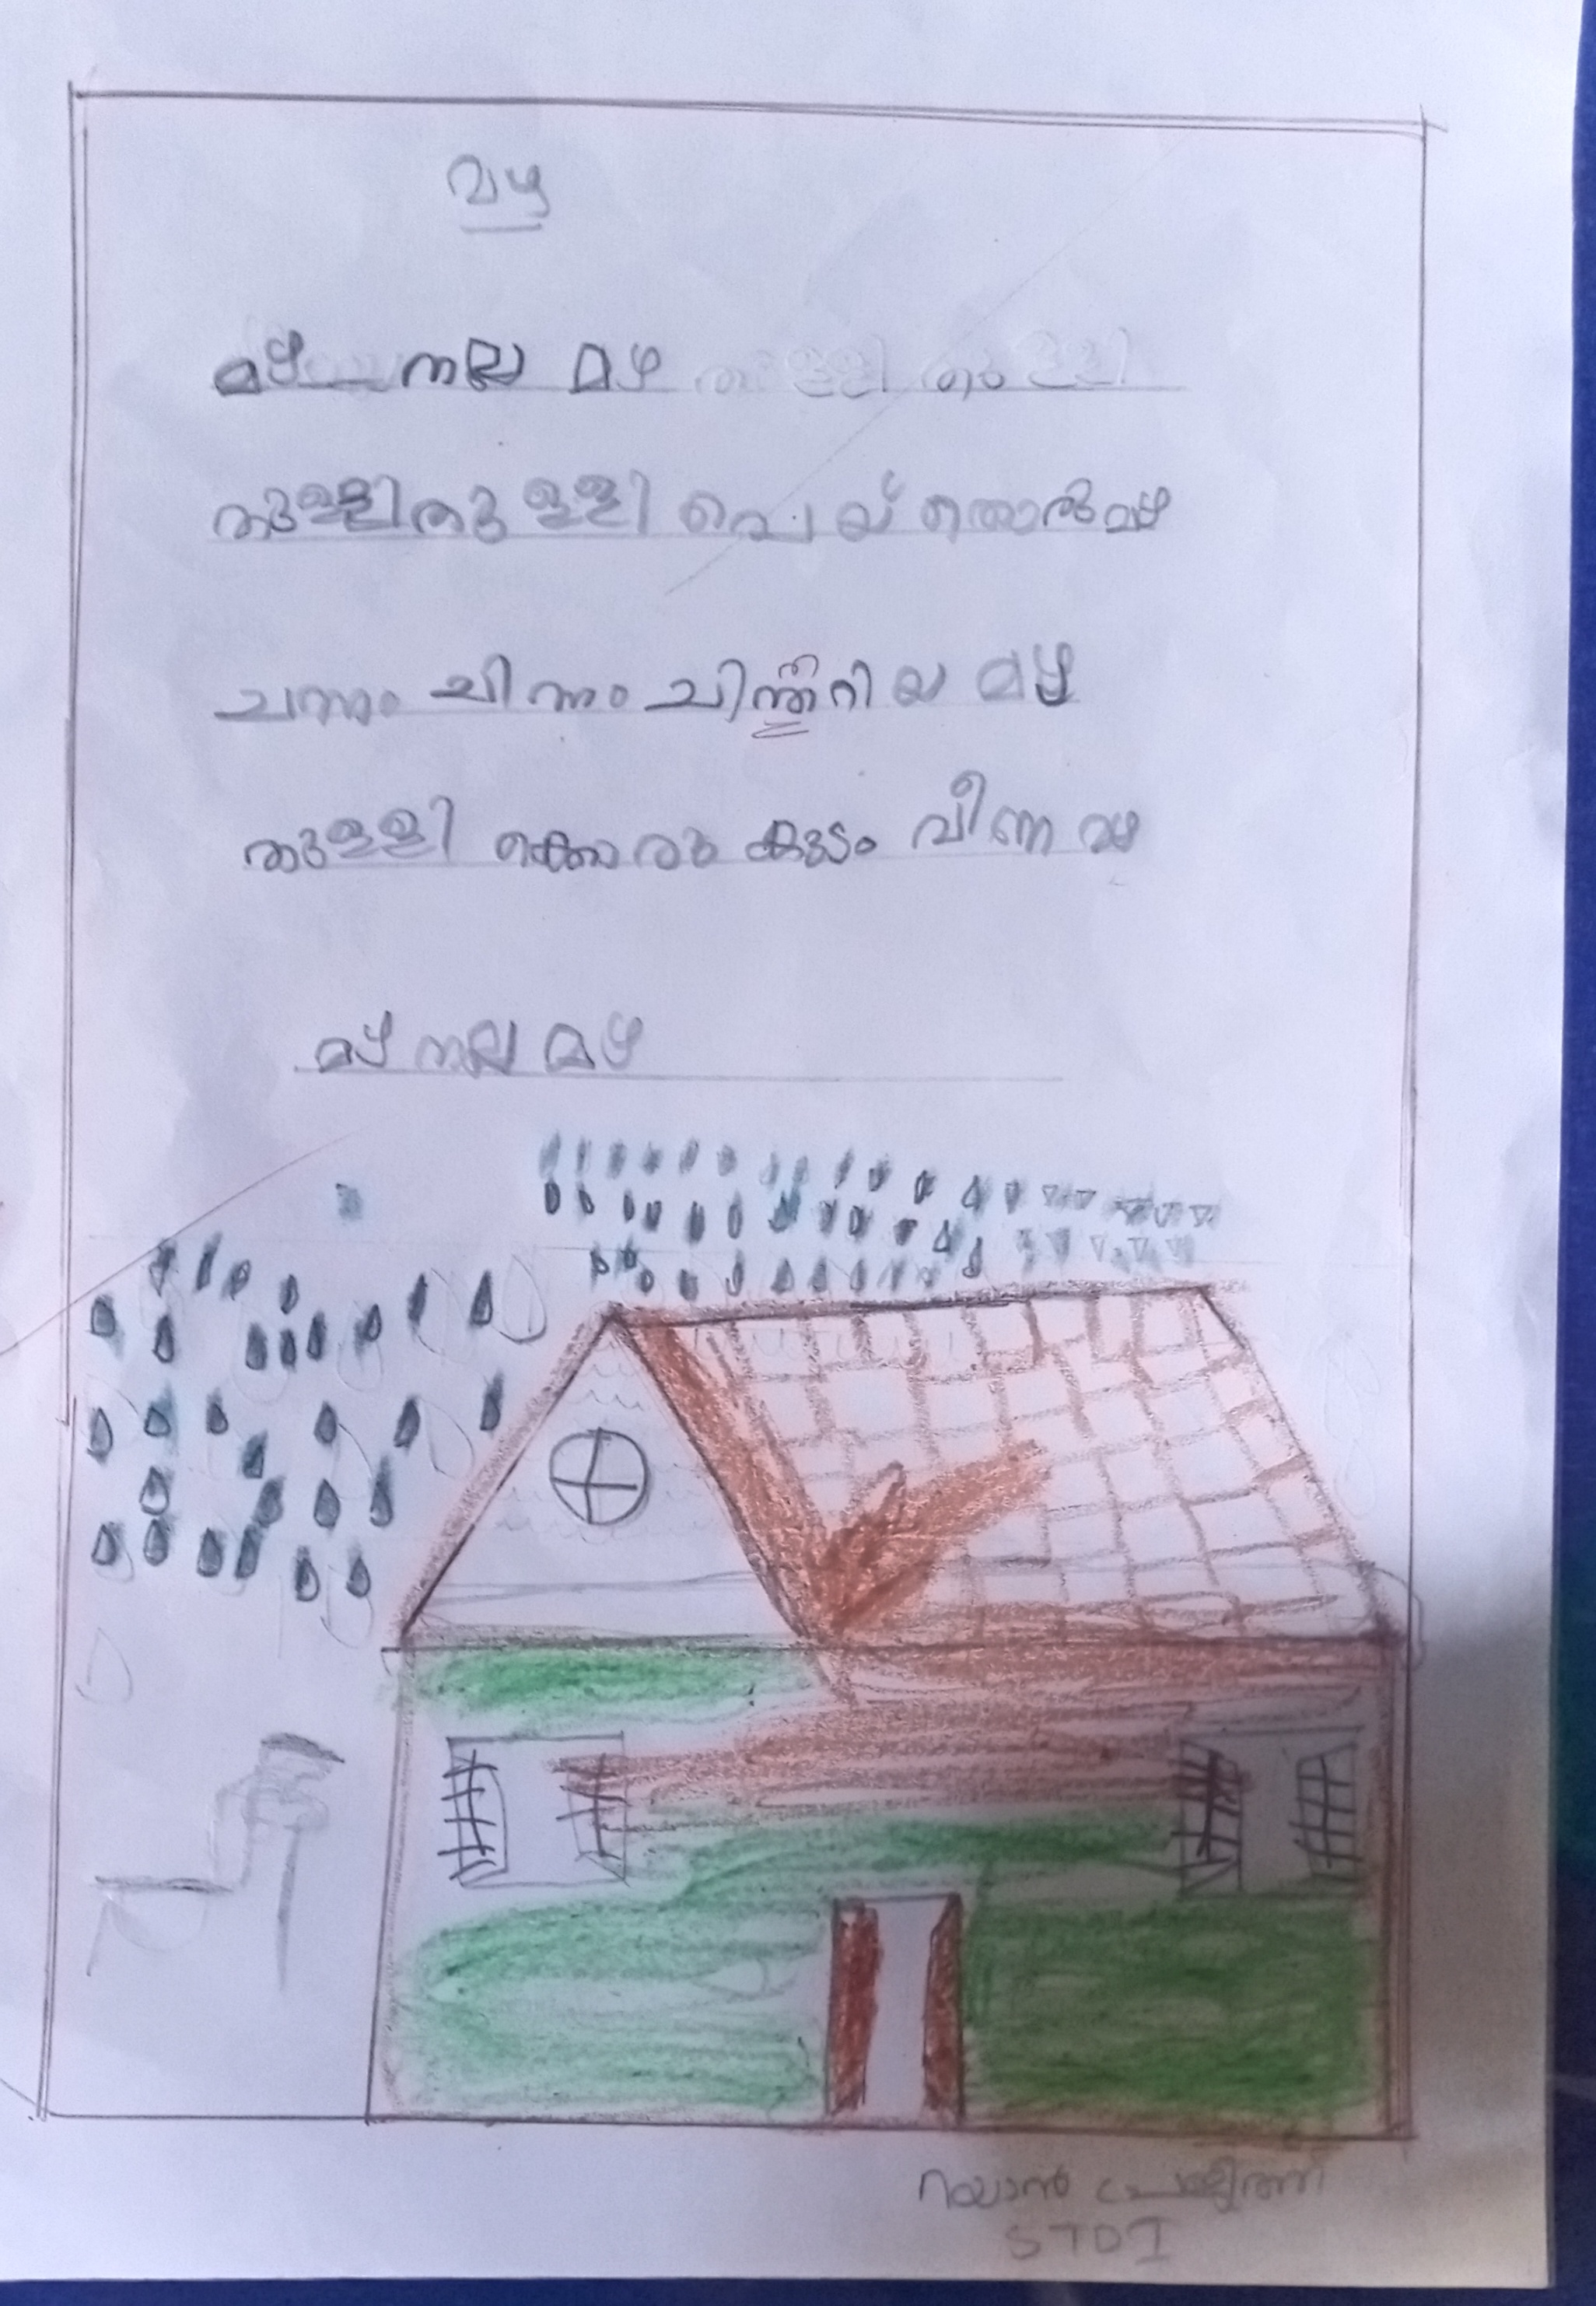 മഴ
മഴ നല്ല മഴ
തുള്ളിതുള്ളി പെയ്തൊരുമഴ
ചന്നം ചിന്നം ചിന്നിറിയ മഴ
തുള്ളിക്കൊരു കുടം വീണ മഴ
മഴ നല്ല മഴ
റയാൻ
STD I